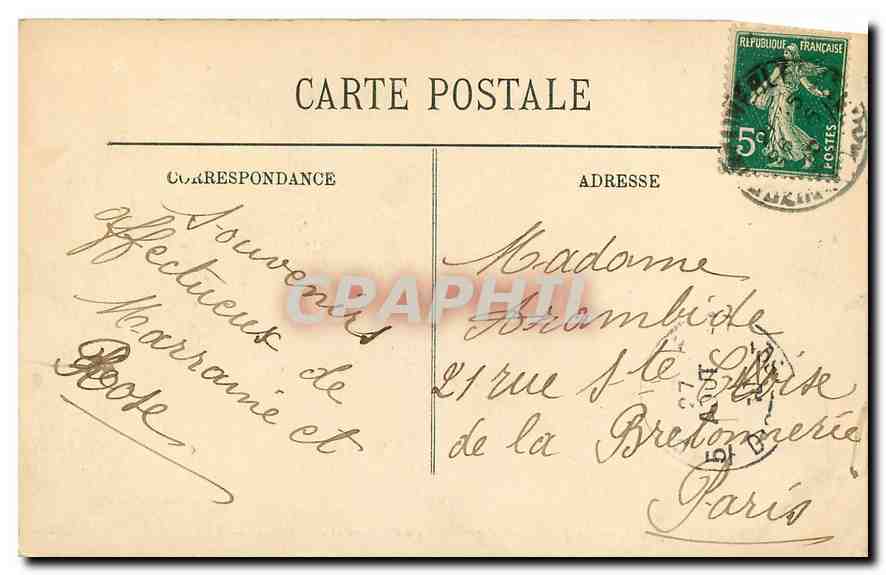 CARTE POSTALE
RÉPUBLIQUE FRANÇAISE
5c
POSTES
CORRESPONDANCE
ADRESSE
Souvenirs
affectueux
de
Marraine et
Rose
Madame
Arambide
21 rue Ste
de la Bretonnerie
Paris
CPAPHIL
5 AOUT